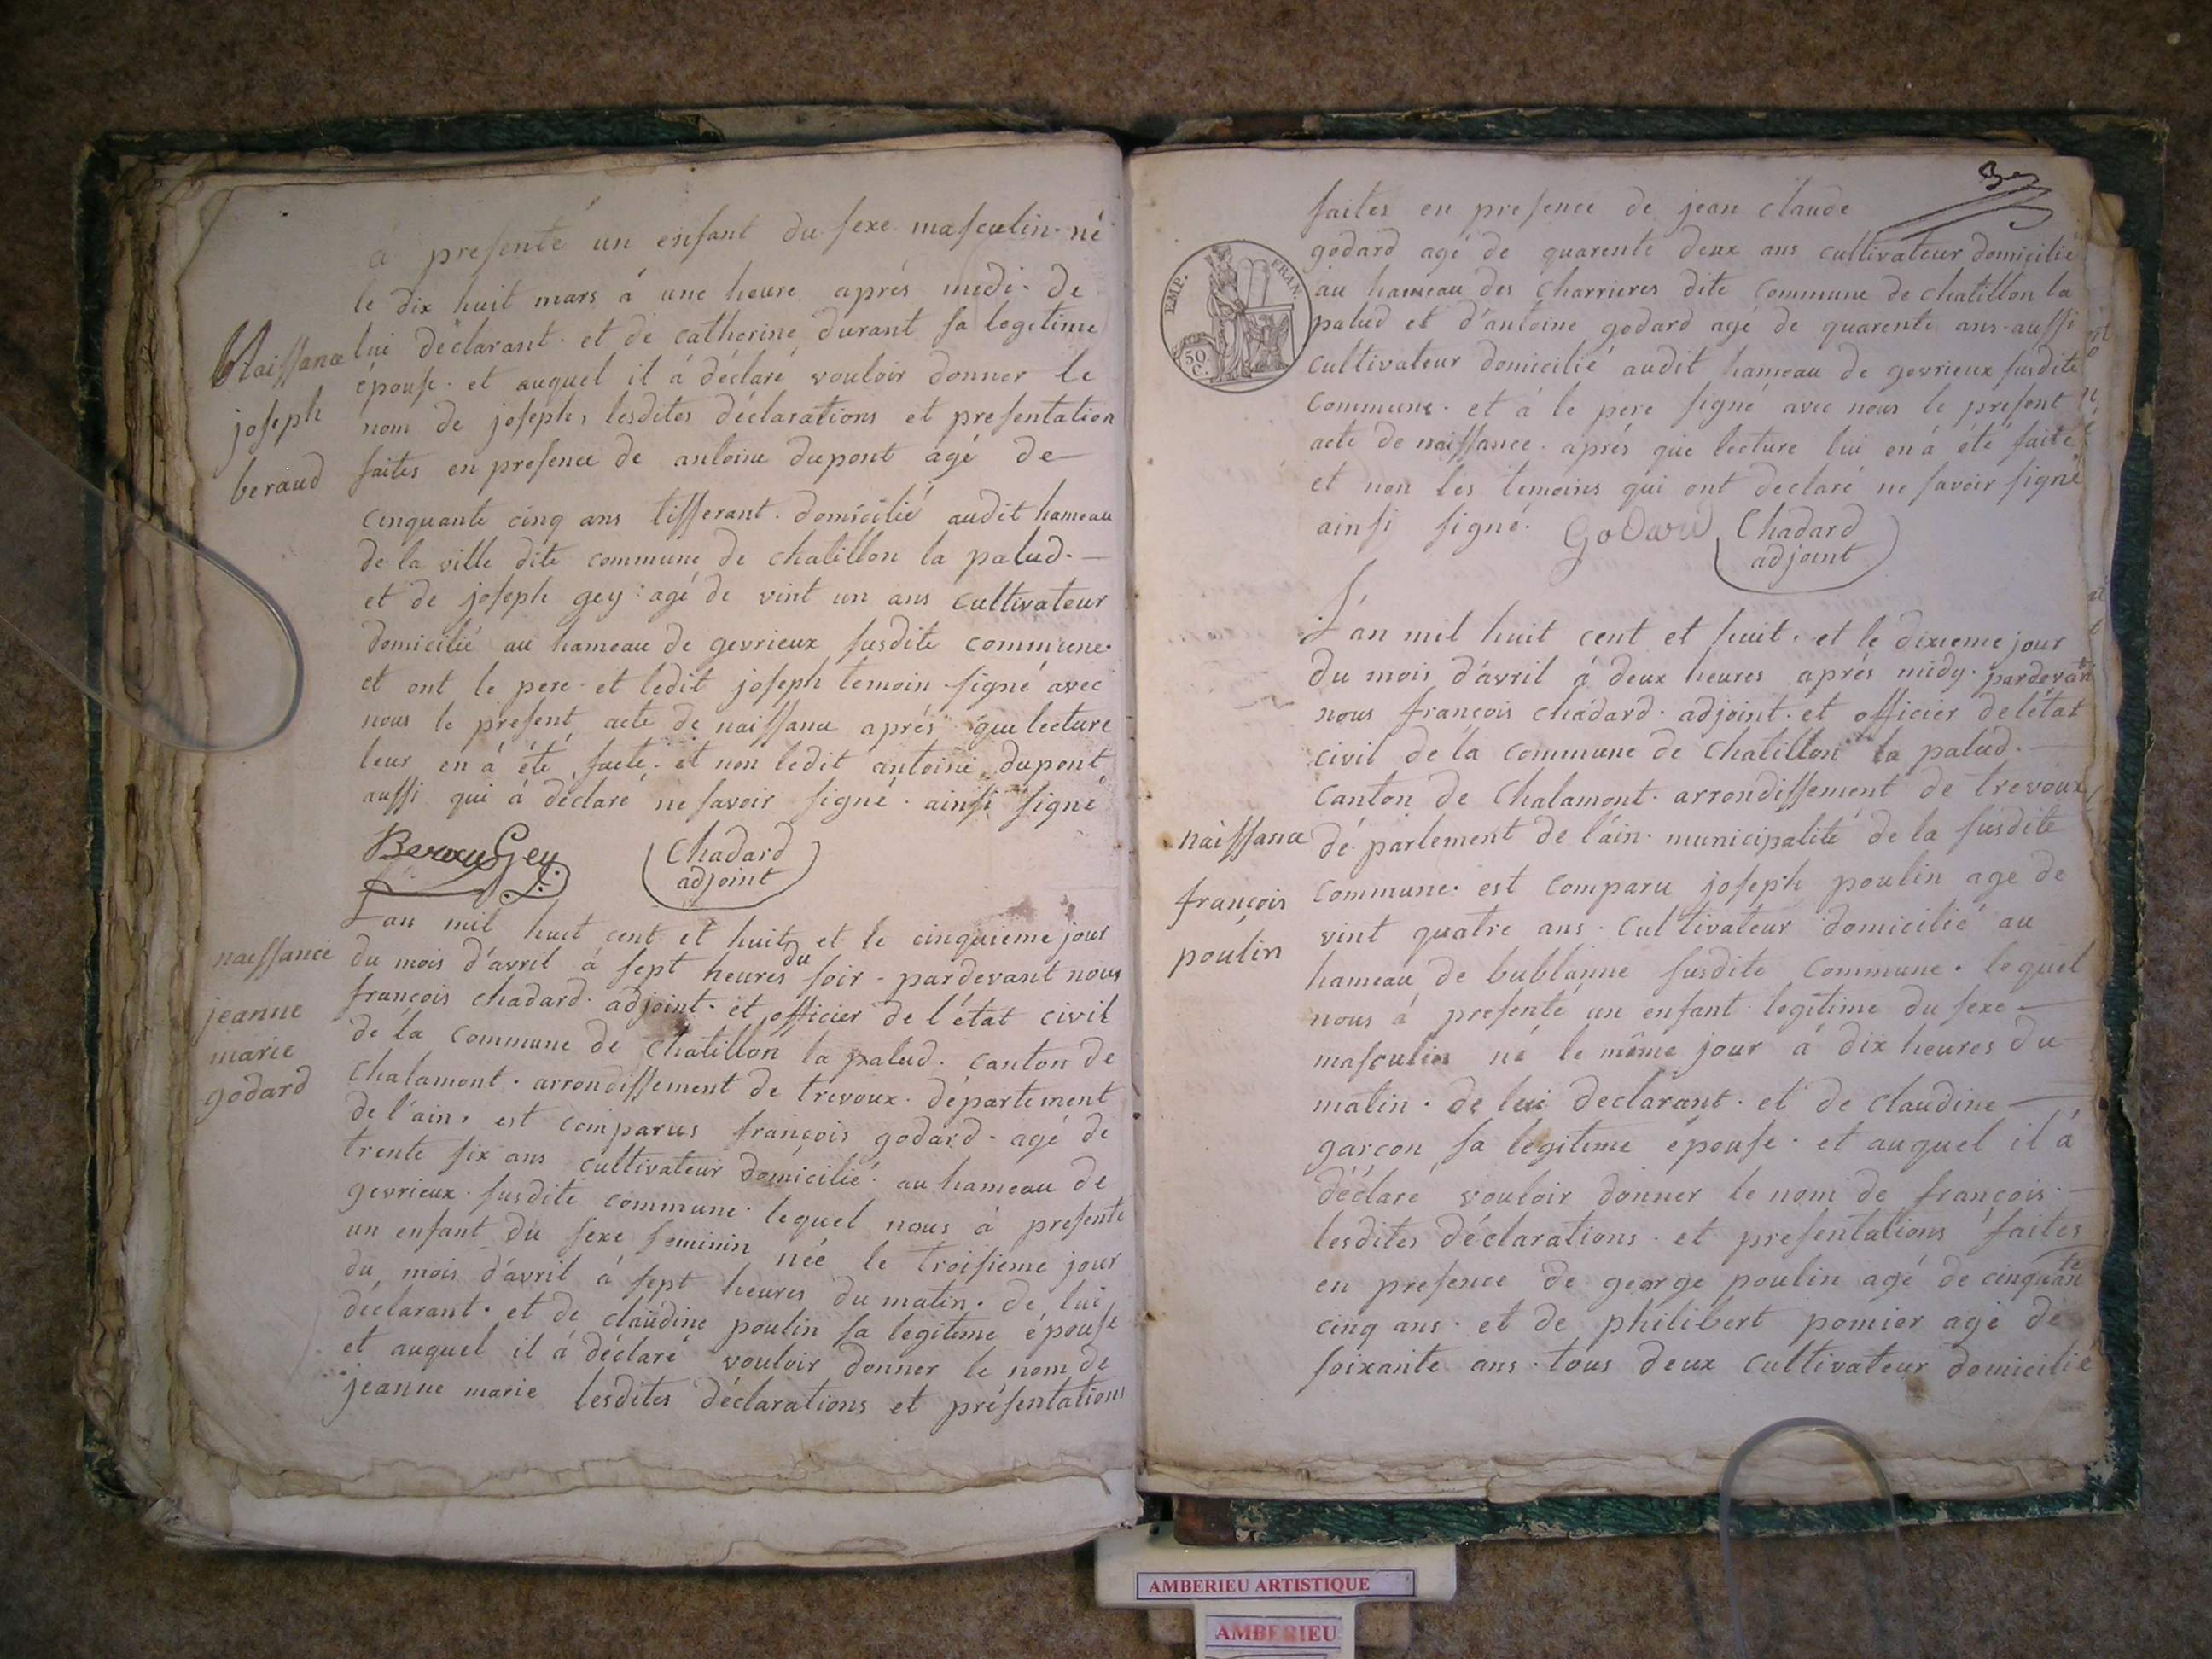 à presenté un enfant du sexe masculin. né
le dix huit mars à une heure aprés midi. de
Naissance
lui déclarant. et de catherine durant sa legetime
épouse. et auquel il á déclaré vouloir donner le
joseph
nom de joseph, lesdites déclarations et presentation
beraud
faites en presence de antoine dupont agé de
cinquante cinq ans tisserant. domicilié audit hameau
de la ville dite commune de chatillon la palud.
et de joseph gey agé de vint un ans cultivateur
domicilié au hameau de gevrieux susdite commune.
et ont le pere. et ledit joseph temoin signé avec
nous le present acte de naissance aprés que lecture
leur en à été faete. et non ledit antoine dupont
aussi qui á déclaré ne savoir signé. ainsi signé
Gey
Chadard
adjoint
L'an mil huit cent et huit, et le cinquieme jour
naissance
du mois d'avril á sept heures du soir - pardevant nous
jeanne
françois chadard. adjoint. et officier de l'état civil
marie
de la commune de chatillon la palud. canton de
godard
chalamont. arrondissement de trevoux. département
de l'ain, est comparus françois godard. agé de
trente six ans cultivateur domicilié. au hameau de
gevrieux. susdite commune. lequel nous à presenté
un enfant du sexe feminin née le troisieme jour
du mois d'avril á sept heures du matin. de lui
déclarant. et de claudine poulin sa legitime épouse
et auquel il á déclaré vouloir donner le nom de
jeanne marie lesdites déclarations et présentations
EMP. FRAN.
50 C.
faites en presence de jean claude
godard agé de quarente deux ans cultivateur domicilié
au hameau des charrieres dite commune de chatillon la
palud et d'antoine godard agé de quarente ans. aussi
cultivateur domicilié audit hameau de gevrieux susdite
commune. et á le pere signé avec nous le present
acte de naissance. aprés que lecture lui en á été faite
et non les temoins qui ont declaré ne savoir signé
ainsi signé. Godard Chadard
adjoint
L'an mil huit cent et huit. et le dixieme jour
du mois d'ávril á deux heures aprés midy. pardevant
nous françois chadard. adjoint. et officier de l'état
civil de la commune de chatillon la palud.
canton de chalamont. arrondissement de trevoux
naissance
département de l'áin. municipalité de la susdite
françois
commune. est comparu joseph poulin age de
poulin
vint quatre ans. cultivateur domicilié au
hameau de bublanne susdite commune. lequel
nous á presenté un enfant legitime du sexe
masculin né le même jour á dix heures du
matin. de lui declarant. et de claudine
garçon sa legitime épouse. et auquel il á
déclaré vouloir donner le nom de françois.
lesdites déclarations. et presentations faites
en presence de george poulin agé de cinquante
cinq ans. et de philibert pomier agé de
soixante ans. tous deux cultivateur domicilié
AMBERIEU ARTISTIQUE
AMBERIEU